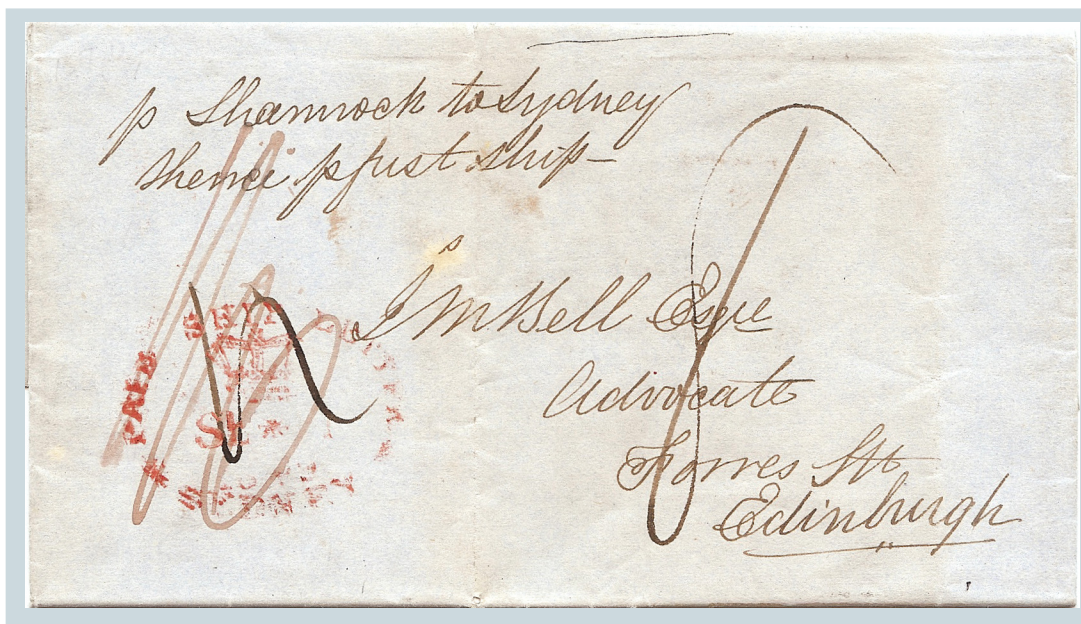 p Shamrock to Sydney
thence p first ship —
J M Bell Esqre
Advocate
Forres Stt
Edinburgh
PAID SHIP LETTER
SYDNEY